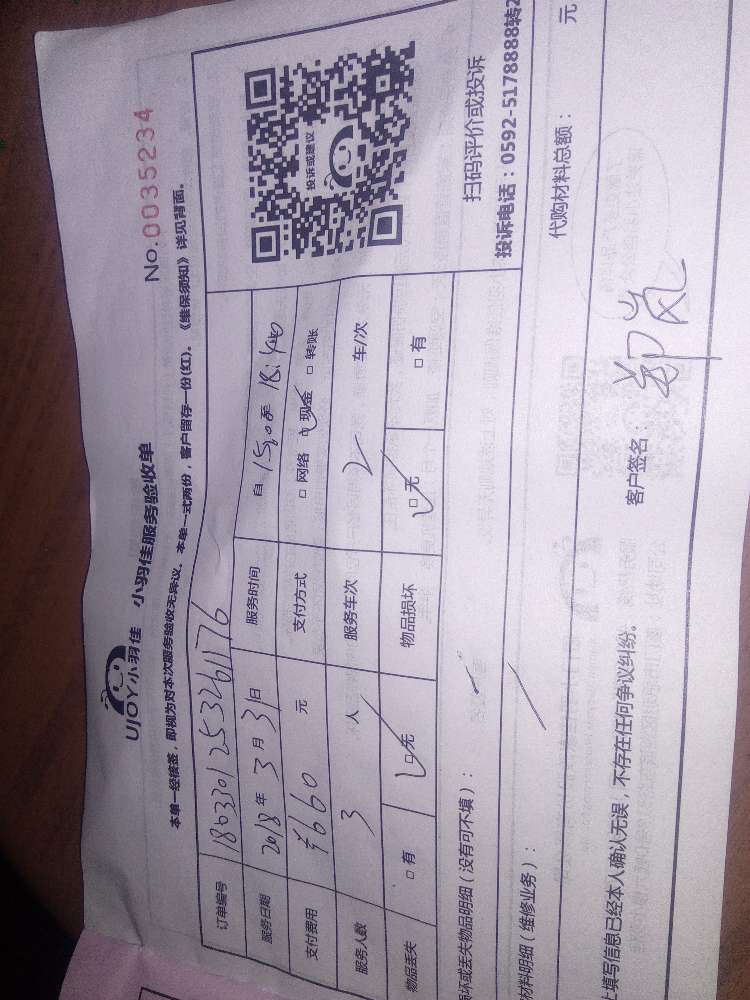 UJOY小羽佳 小羽佳服务验收单
No.0035234
本单一经核签，即视为对本次服务验收无异议。本单一式两份，客户留存一份(红)。《维保须知》详见背面。
订单编号 180330125326176
服务日期 2018年3月31日 服务时间 自 15:00至 18:40
支付费用 ¥660 元 支付方式 □网络 □现金 □转账
服务人数 3 人 服务车次 2 车/次
物品丢失 □有 □无 物品损坏 □无 □有
投诉或建议
扫码评价或投诉
投诉电话：0592-5178888转2
坏或丢失物品明细（没有可不填）：
材料明细（维修业务）：
代购材料总额： 元
填写信息已经本人确认无误，不存在任何争议纠纷。 客户签名： 郑岚